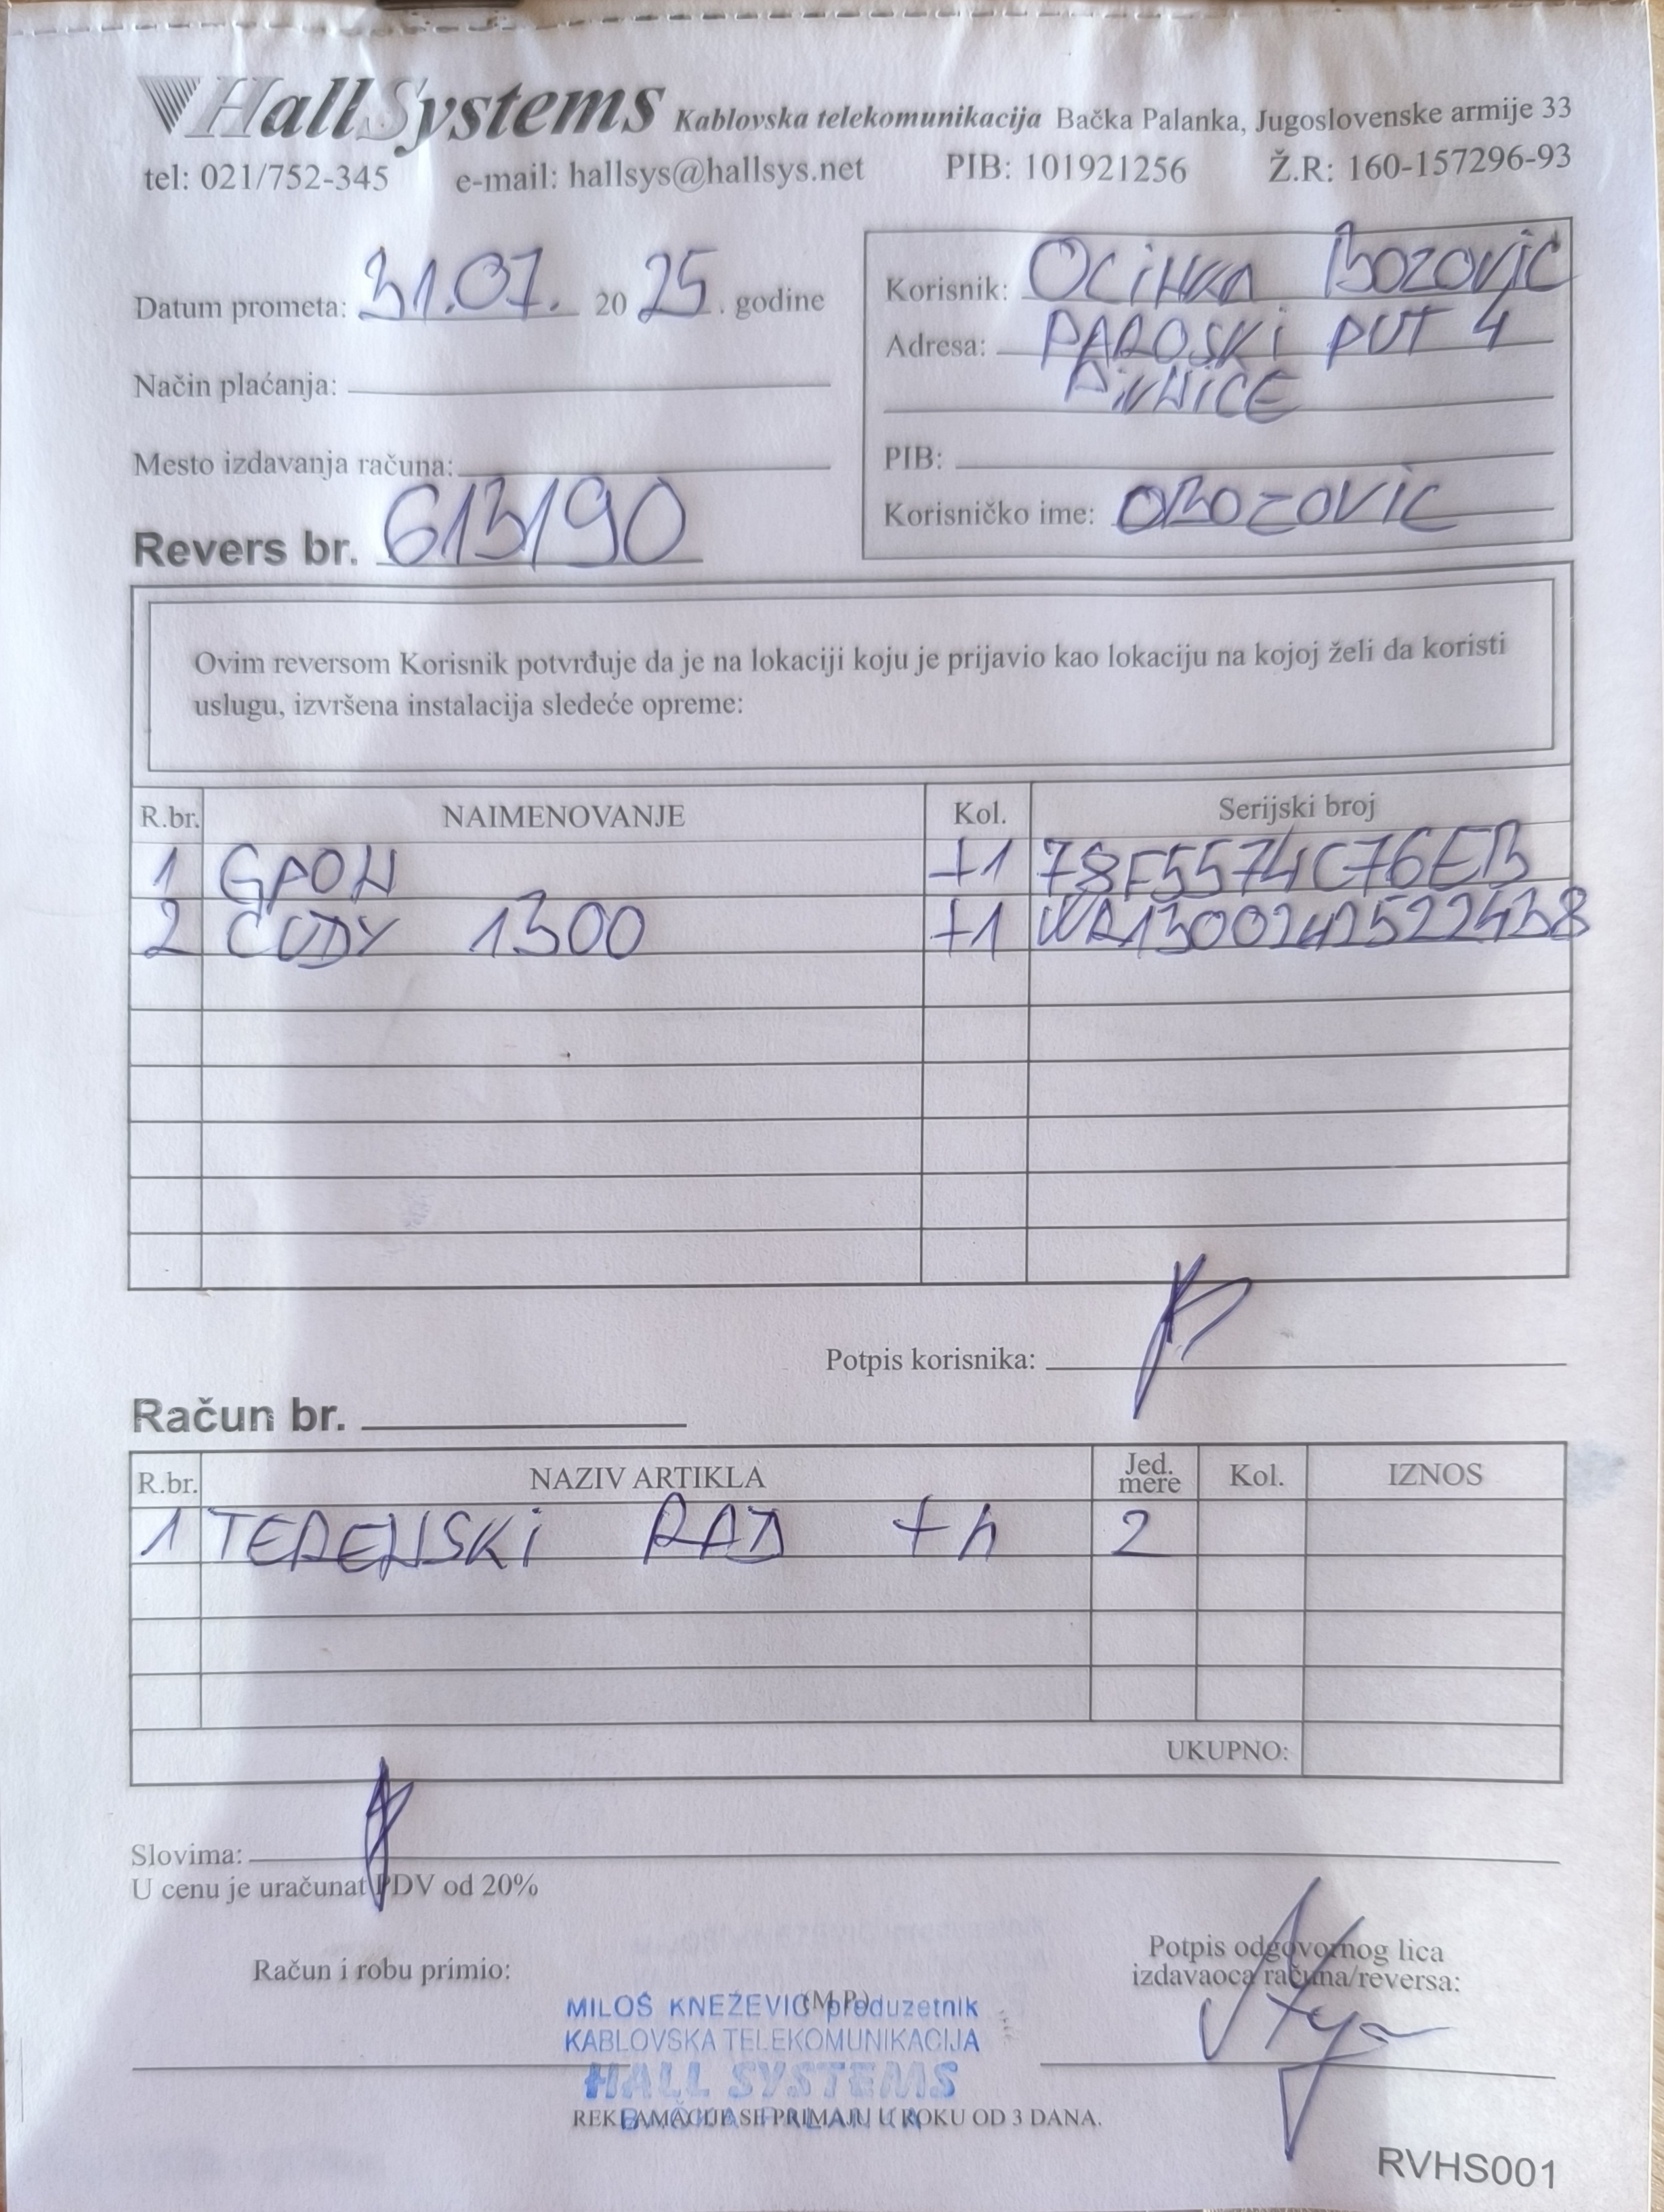 HallSystems Kablovska telekomunikacija Bačka Palanka, Jugoslovenske armije 33
tel: 021/752-345 e-mail: hallsys@hallsys.net PIB: 101921256 Ž.R: 160-157296-93
Datum prometa: 31.07. 20 25. godine
Način plaćanja:
Mesto izdavanja računa:
Revers br. 613/90
Korisnik: OCINKA BOZOVIC
Adresa: PAROSKI PUT 4
PIVNICE
PIB:
Korisničko ime: OBOZOVIC
Ovim reversom Korisnik potvrđuje da je na lokaciji koju je prijavio kao lokaciju na kojoj želi da koristi
uslugu, izvršena instalacija sledeće opreme:
R.br. NAIMENOVANJE Kol. Serijski broj
1 GPON +1 78F5574C76EB
2 CUDY 1300 +1
Potpis korisnika:
Račun br.
R.br. NAZIV ARTIKLA Jed. mere Kol. IZNOS
1 TERENSKI RAD + h 2
UKUPNO:
Slovima:
U cenu je uračunat PDV od 20%
Račun i robu primio:
(M.P.)
Potpis odgovornog lica
izdavaoca računa/reversa:
MILOŠ KNEŽEVIĆ preduzetnik
KABLOVSKA TELEKOMUNIKACIJA
HALL SYSTEMS
BAČKA PALANKA
REKLAMACIJE SE PRIMAJU U ROKU OD 3 DANA.
RVHS001